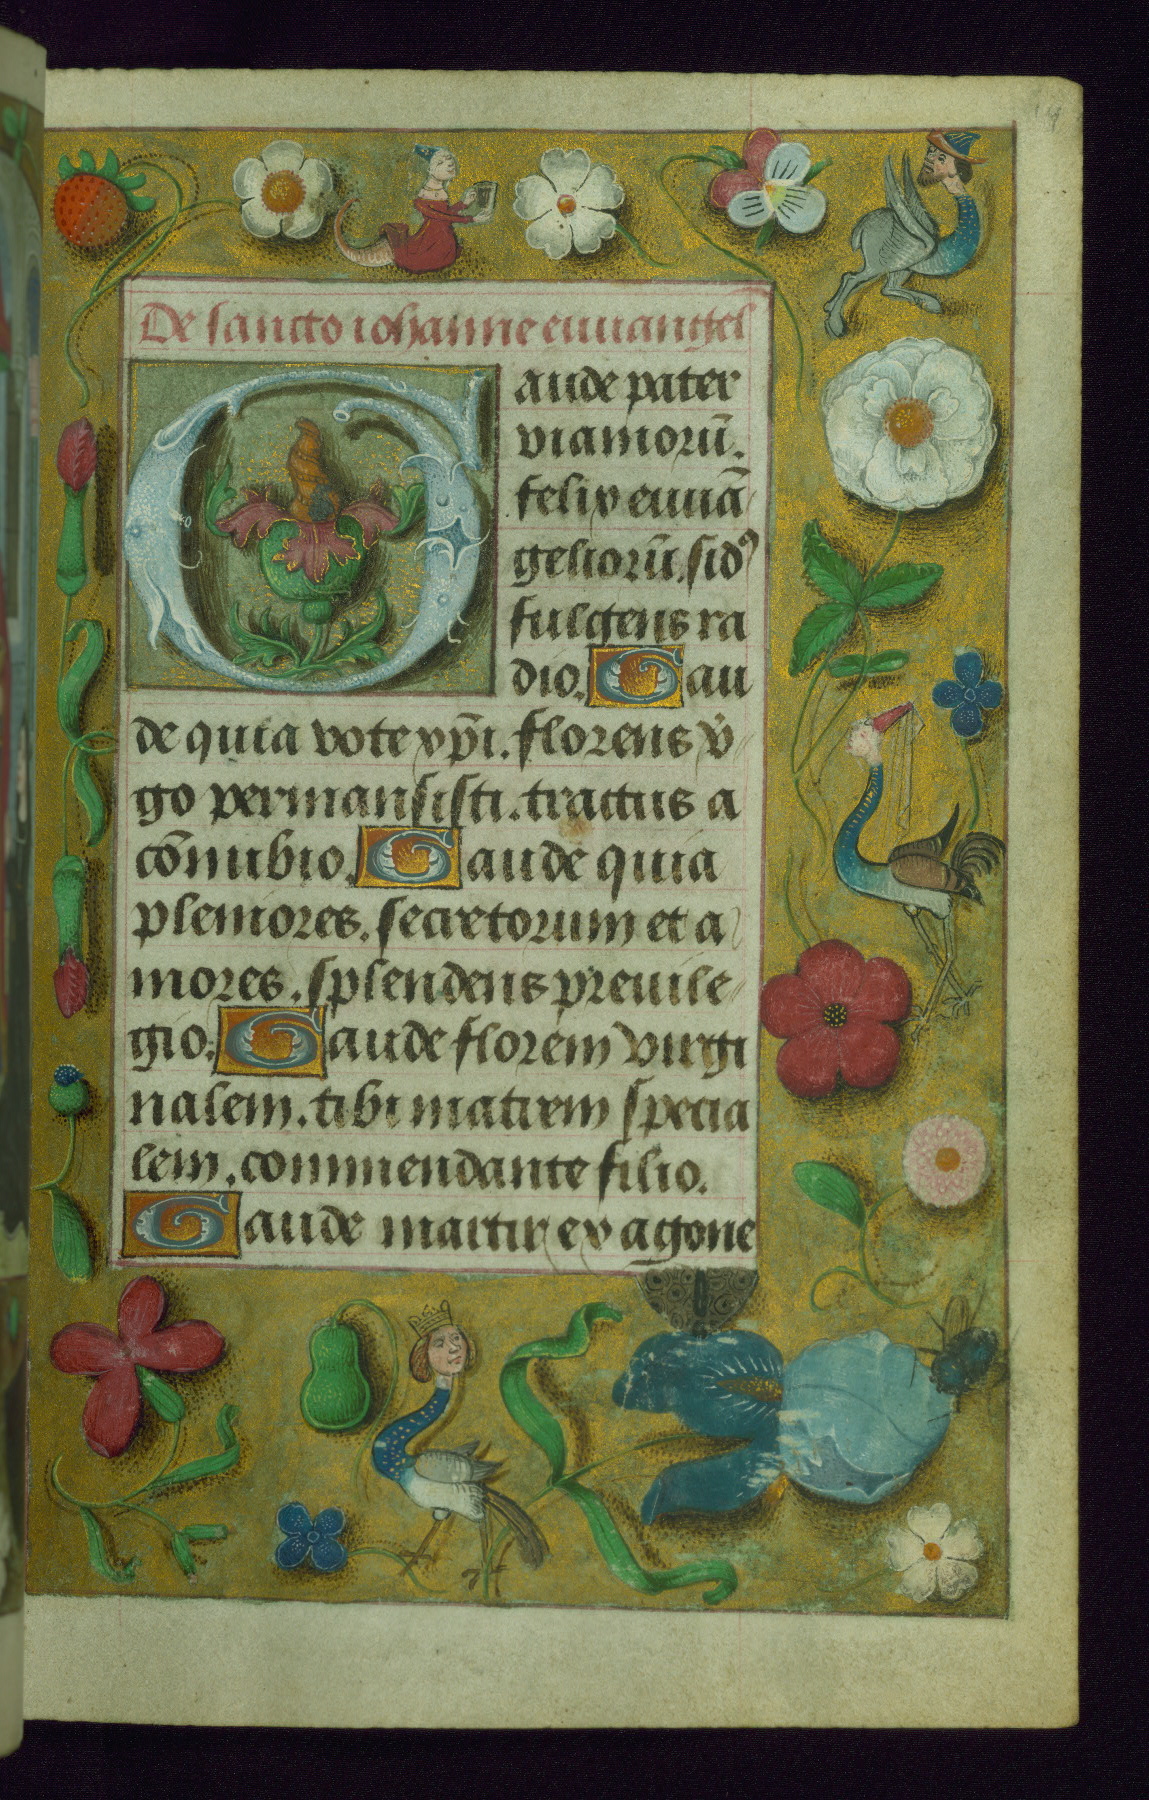 De sancto iohanne euuangel
Gaude pater
viamorū.
felix euuā
geliorū. sidꝰ
fulgens ra
dio. Gau
de quia vote xp̄i. florens v̓
go permansisti. tractus a
cōnubio. Gaude quia
pleniores. secretorum et a
mores. splendens preuile
gio. Gaude florem virgi
nalem. tibi matrem specia
lem. commendante filio.
Gaude martir ex agone